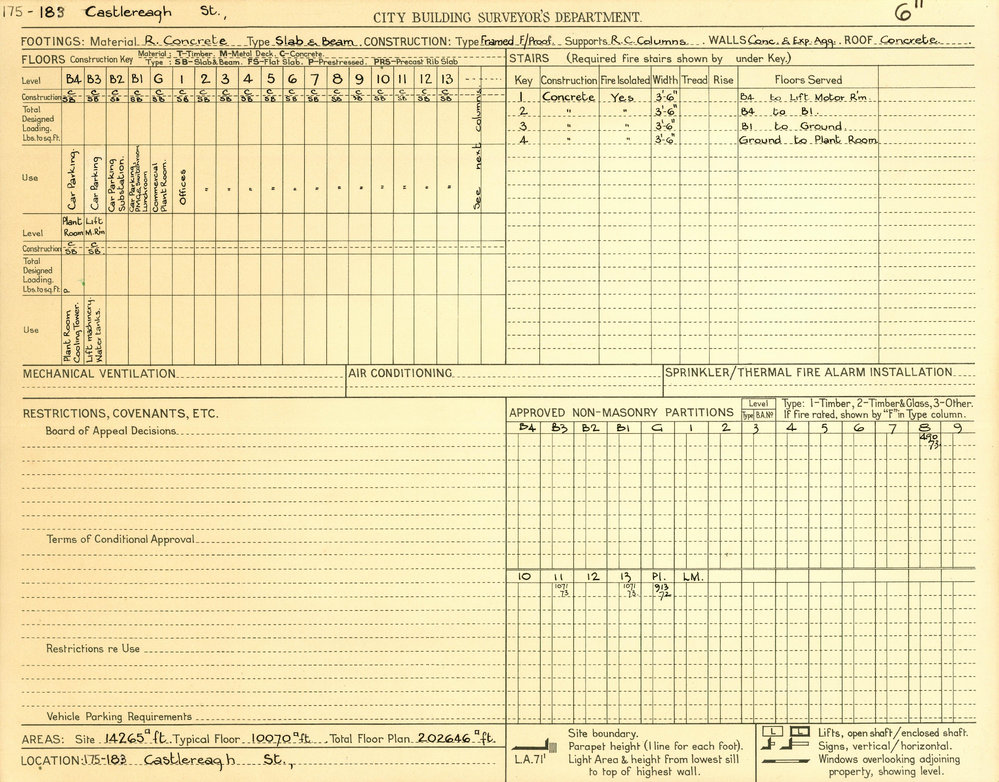 175 - 183 Castlereagh St.,
CITY BUILDING SURVEYOR'S DEPARTMENT.
6"
FOOTINGS: Material R. Concrete Type Slab & Beam CONSTRUCTION: Type Framed F/Proof. Supports R.C. Columns WALLS Conc. & Exp. Agg. ROOF Concrete
FLOORS Construction Key Material: T-Timber. M-Metal Deck. C-Concrete.
Type: SB-Slab & Beam. FS-Flat Slab. P-Prestressed. PRS-Precast Rib Slab
Level B4 B3 B2 B1 G 1 2 3 4 5 6 7 8 9 10 11 12 13
Construction C C C C C C C C C C C C C C C C C C
SB SB SB SB SB SB SB SB SB SB SB SB SB SB SB SB SB SB
Total
Designed
Loading.
Lbs. to sq. ft.
Use
Car Parking.
Car Parking
Car Parking
Substation.
Car Parking.
Lunchroom
Commercial
Plant Room.
Offices
" " " " " " " " " " " "
See next columns
Level Plant Room Lift M.R'm
Construction C C
SB SB
Total
Designed
Loading.
Lbs. to sq. ft.
Use
Plant Room
Cooling Tower.
Lift machinery.
Water tanks.
STAIRS (Required Fire stairs shown by under Key.)
Key Construction Fire Isolated Width Tread Rise Floors Served
1 Concrete Yes 3'-6" B4 to Lift Motor R'm
2 " " 3'-6" B4 to B1.
3 " " 3'-6" B1 to Ground.
4 " " 3'-6" Ground to Plant Room
MECHANICAL VENTILATION
AIR CONDITIONING
SPRINKLER/THERMAL FIRE ALARM INSTALLATION
RESTRICTIONS, COVENANTS, ETC.
Board of Appeal Decisions
Terms of Conditional Approval
Restrictions re Use
Vehicle Parking Requirements
APPROVED NON-MASONRY PARTITIONS
Level
Type B.A.Nº
Type: 1-Timber, 2-Timber & Glass, 3-Other.
If Fire rated, shown by "F" in Type column.
B4 B3 B2 B1 G 1 2 3 4 5 6 7 8 9
490
73
10 11 12 13 Pl. LM.
1071 1071 913
73 73 72
AREAS: Site 14265 □ ft. Typical Floor 10070 □ ft. Total Floor Plan 202646 □ ft.
LOCATION: 175-183 Castlereagh St.,
Site boundary.
Parapet height (1 line for each foot).
L.A. 71' Light Area & height from lowest sill
to top of highest wall.
L L Lifts, open shaft/enclosed shaft.
Signs, vertical/horizontal.
Windows overlooking adjoining
property, showing level.